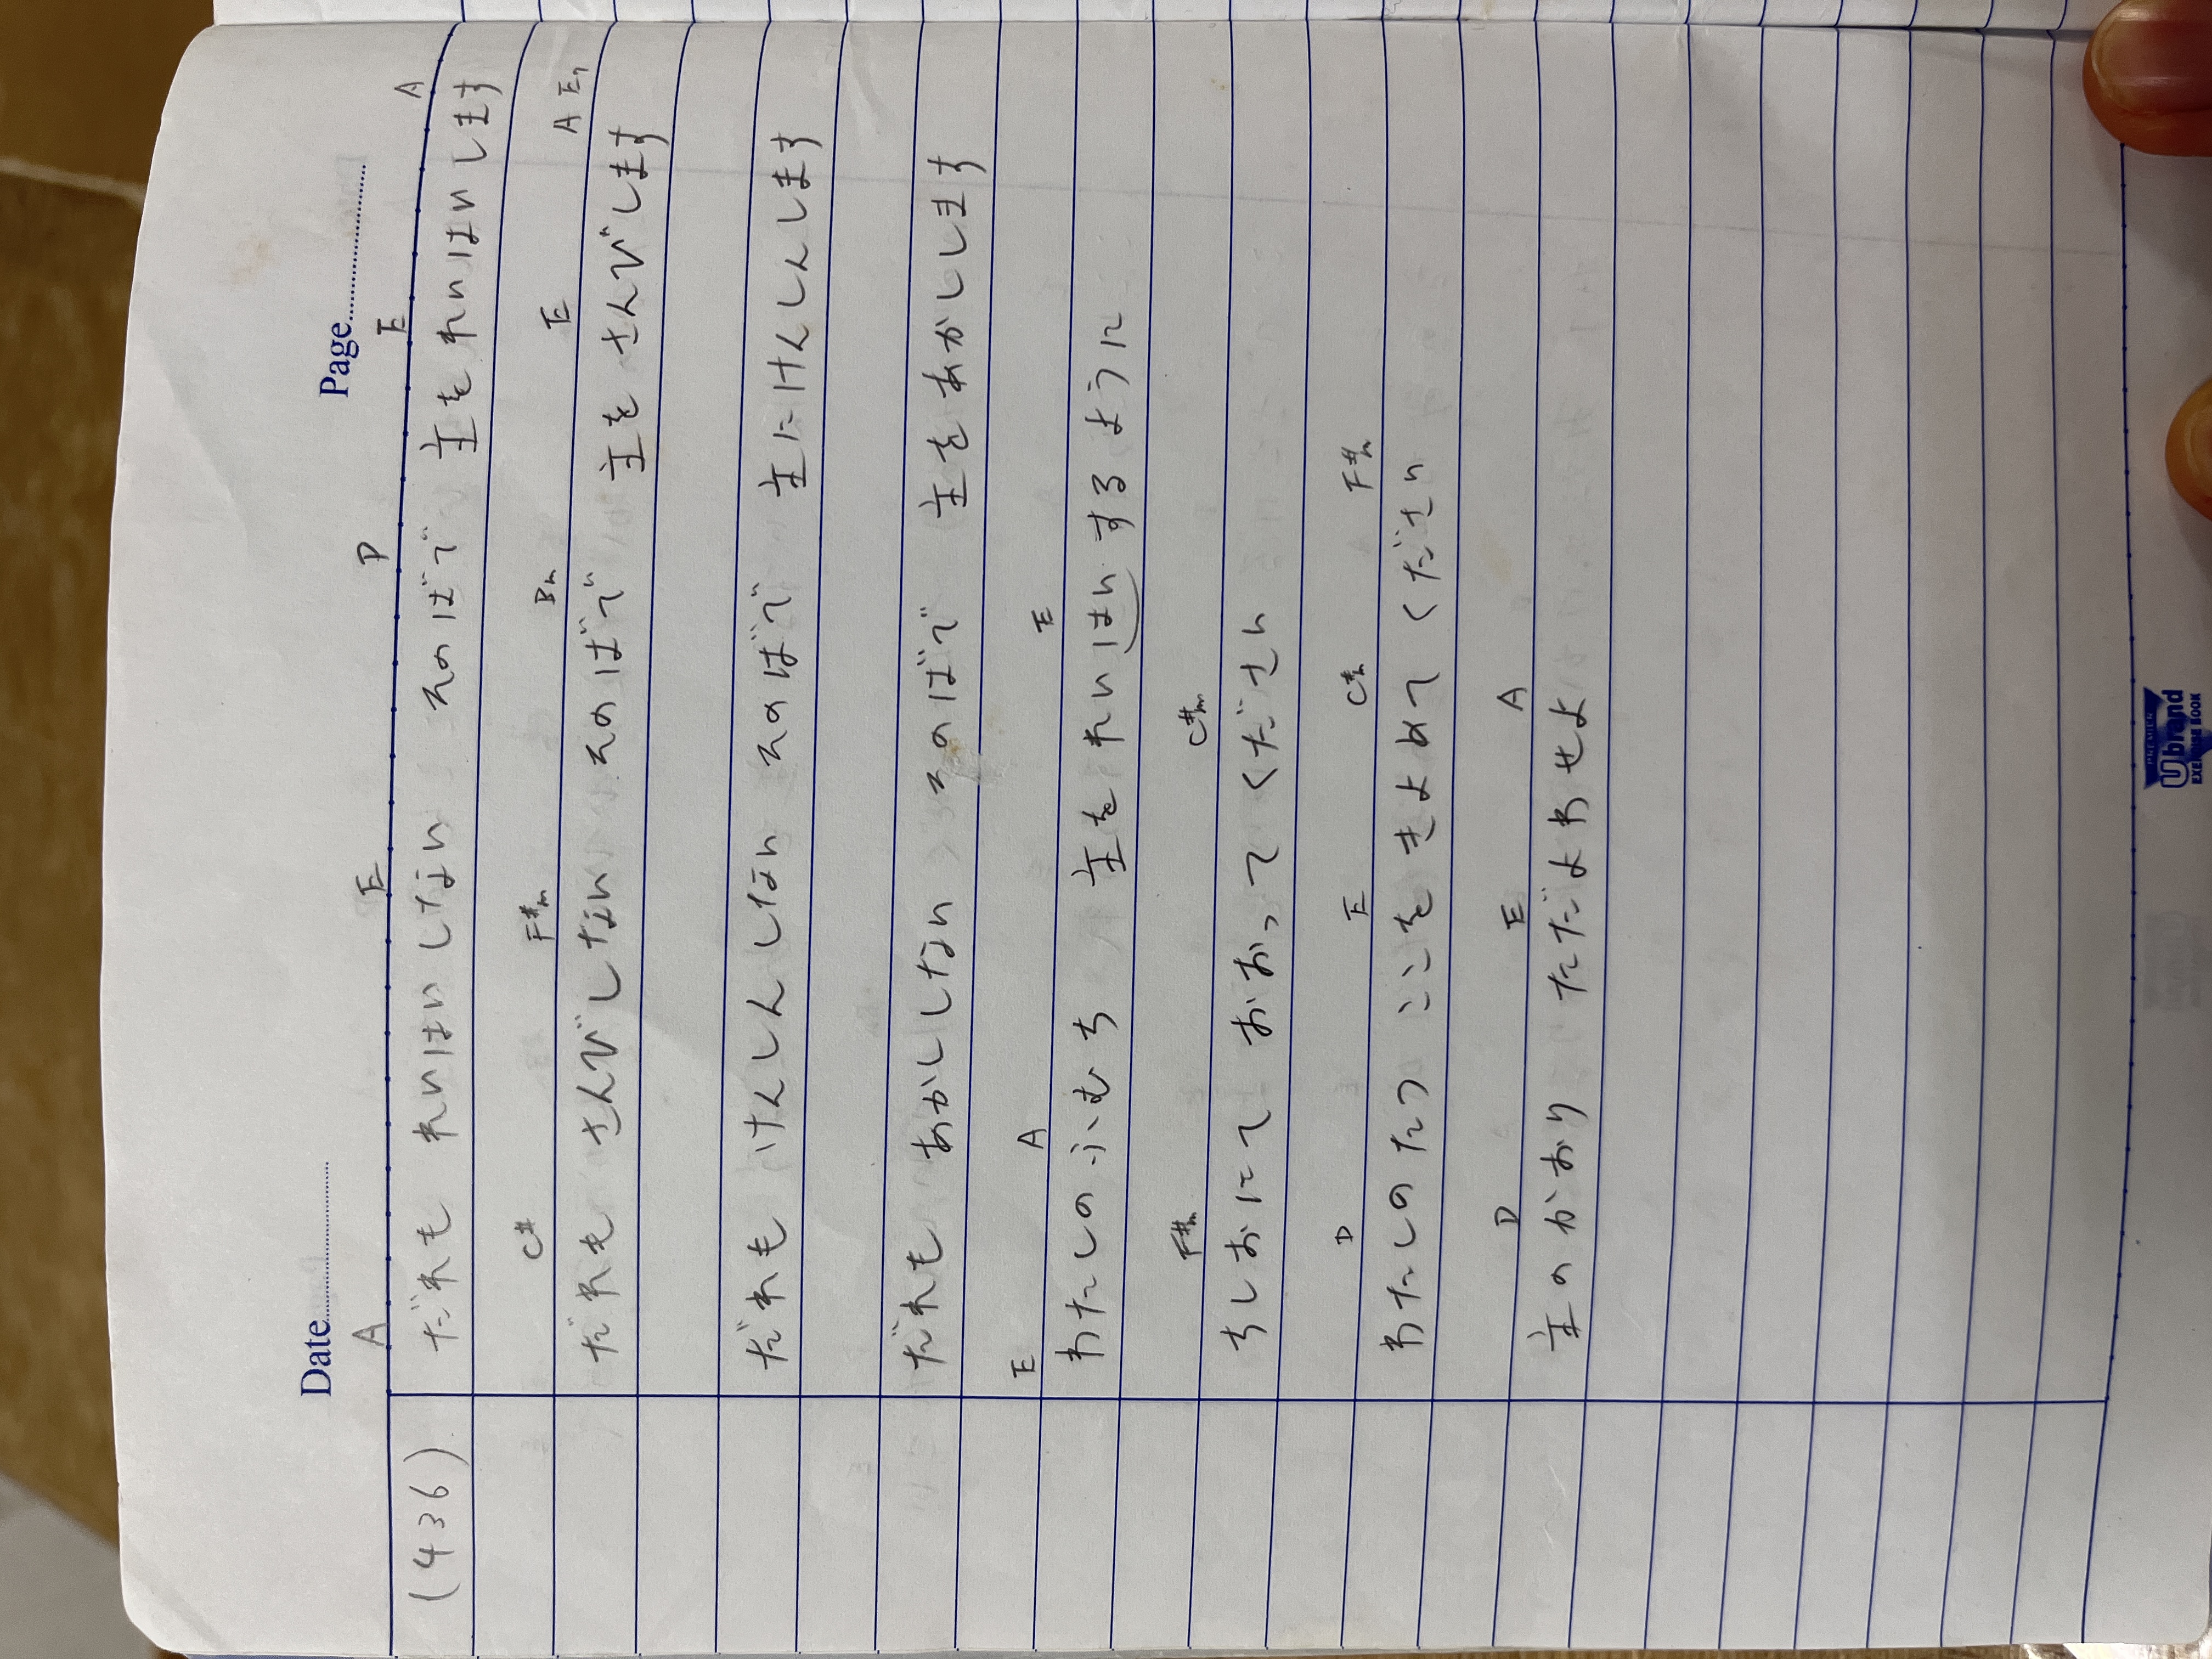 Date Page
A E D E A
(436) だれも れいはいしない そのばで 主をれいはいします
C# F#m Bm E A E7
だれも さんびしない そのばで 主をさんびします
だれも けんしんしない そのばで 主にけんしんします
だれも あかししない そのばで 主をあかしします
E A E
わたしのふむち 主をれいはいするように
F#m C#m
ちしおにて おおってください
D E C# F#m
わたしのたつ ここをきよめてください
D E A
主のかおり ただよわせよ
Ubrand
EXERCISE BOOK